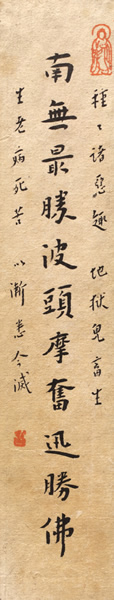 種々諸惡趣 地獄鬼畜生
南無最勝波頭摩奮迅勝佛
生老病死苦 以漸悉令滅